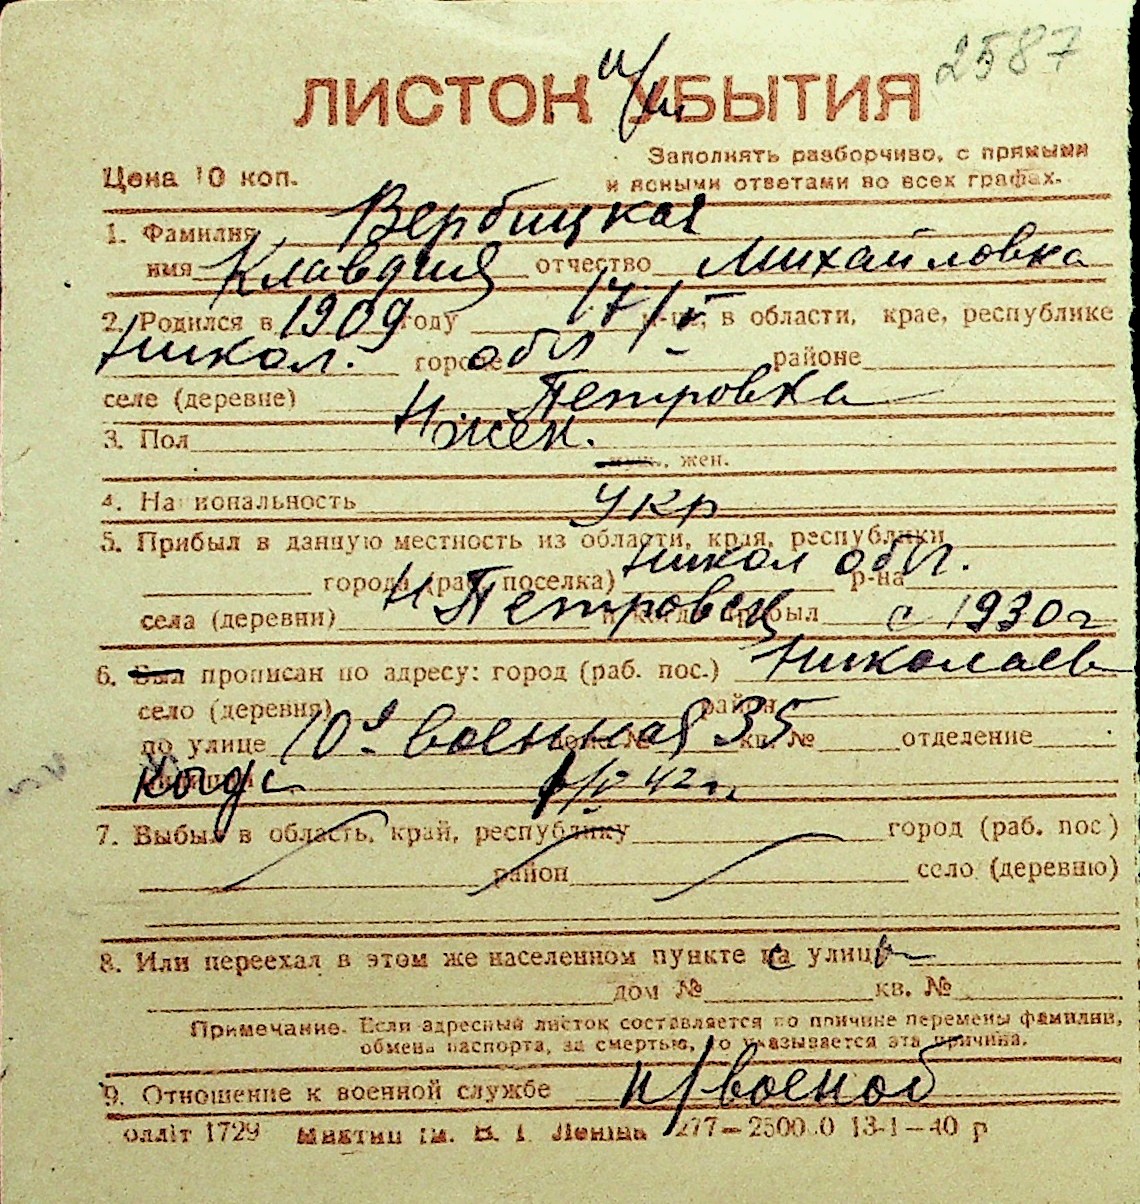 2587
ЛИСТОК УБЫТИЯ
Цена 10 коп.
Заполнять разборчиво, с прямыми
и ясными ответами во всех графах.
1. Фамилия Вербицкая
имя Клавдия отчество Михайловка
2. Родился в 1909 году 17/V м-це, в области, крае, республике
Никол. городе обл районе
селе (деревне) Н. Петровка
3. Пол жен.
муж., жен.
4. Национальность укр
5. Прибыл в данную местность из области, края, республики
Никол обл.
города (раб. поселка) р-на
села (деревни) Н Петровск и когда прибыл с 1930 г
6. Был прописан по адресу: город (раб. пос.) Николаев
село (деревня) район
по улице 10я военная дом № 35 кв. № отделение
милиции когда 1/V 42 г.
7. Выбыл в область, край, республику город (раб. пос.)
район село (деревню)
8. Или переехал в этом же населенном пункте на улицу
дом № кв. №
Примечание. Если адресный листок составляется по причине перемены фамилии,
обмена паспорта, за смертью, то указывается эта причина.
9. Отношение к военной службе н/военоб
оллiт 1729 Миктип iм. В. I. Ленiна 277—2500.0 13-1—40 р